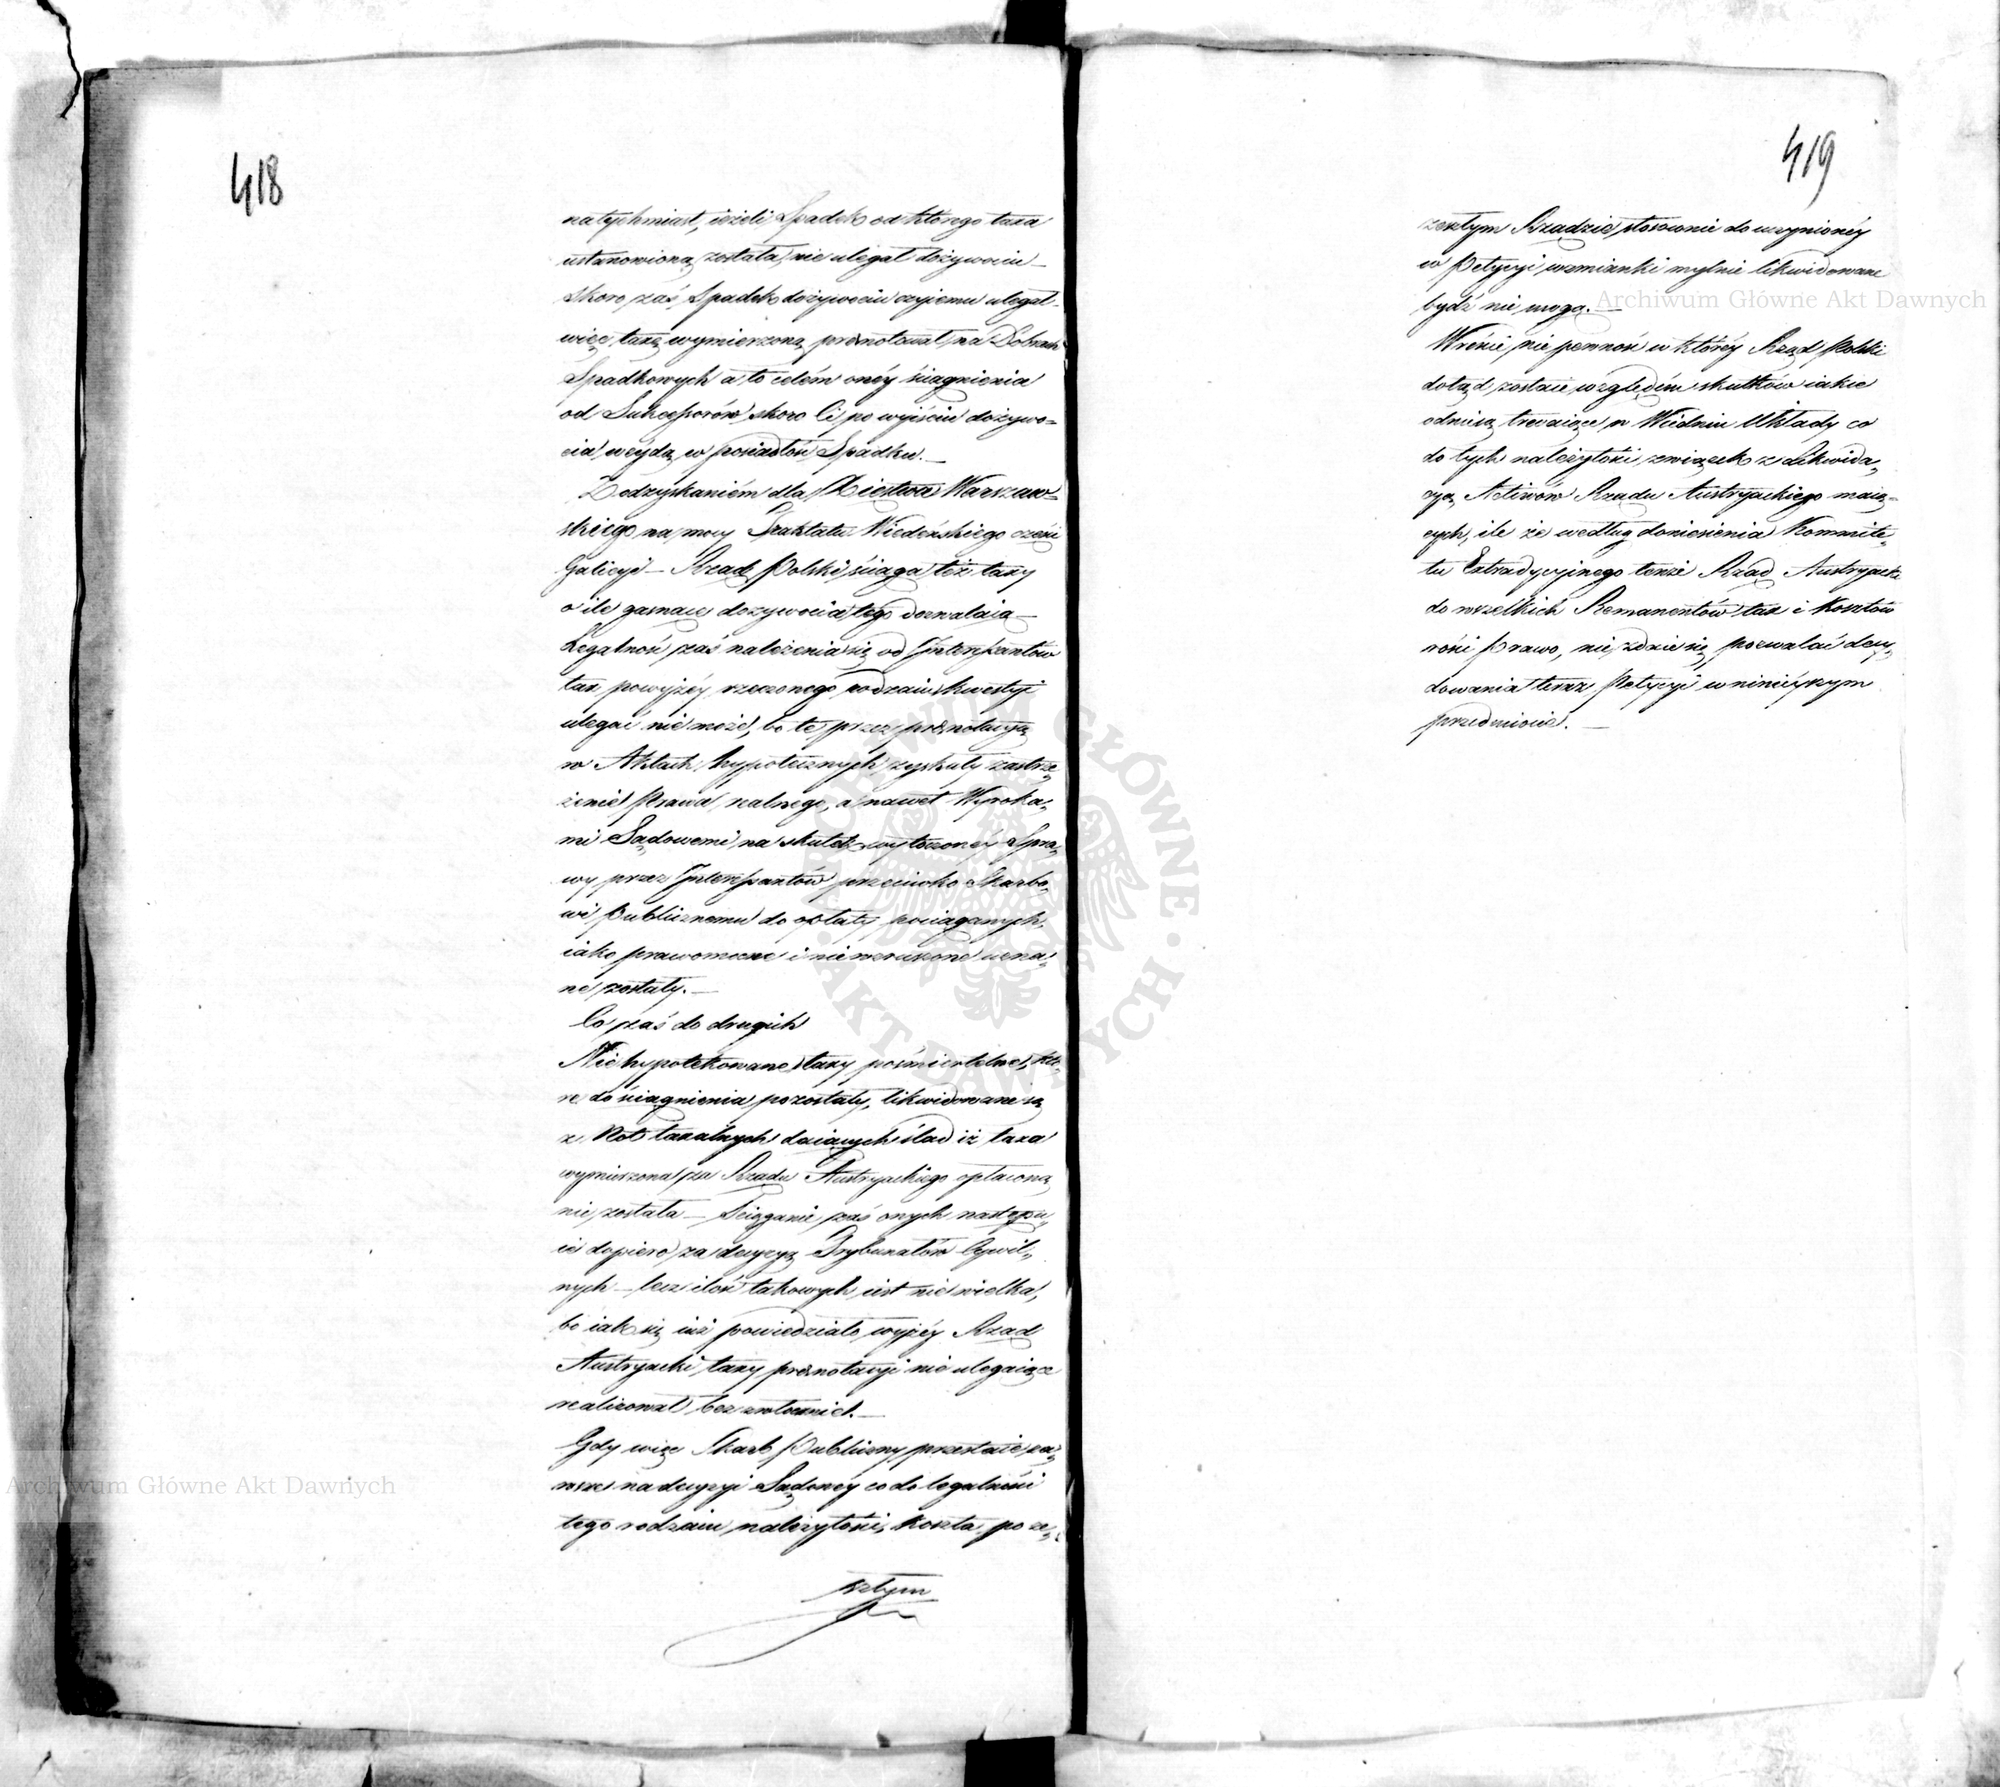 418
natychmiast, ieżeli Spadek od którego taxa
ustanowioną została, nie ulegał dożywociu —
skoro zaś Spadek dożywociu czyiemu ulegał —
więc taxę wymierzoną prenotował na Dobrach
Spadkowych a to celem onéy ściągnienia
od Sukcessorów skoro ci po wyjściu dożywo=
cia weydą w posiadłość Spadku. —
Z odzyskaniem dla Xiestwa Warszaw=
skiego na mocy Traktatu Wiedeńskiego części
Galicyi — Rząd Polski ściąga też taxy
o ile gasnące dożywocia tego dozwalaią —
Legalność zaś należenia się od Interessantów
tax powyżéy rzeczonego rodzaiu kwestyi
ulegać nie może, bo te przez prenotacyą
w Aktach hypotecznych zyskały zastrze=
żenie Prawa realnego, a nawet Wyroka=
mi Sądowemi na skutek wytoczonéy Spra=
wy przez Interessantów przeciwko Skarbo=
wi Publicznemu do opłaty pociąganych,
iako prawomocne i niewzruszone uzna=
ne zostały. —
Co zaś do drugich
Nie hypotekowane taxy pośmiertelne, któ=
re do ściągnienia pozostały, likwidowane są
z Not taxalnych daiących ślad iż taxa
wymierzona za Rządu Austryackiego opłaconą
nie została — Ściąganie zaś onych następu=
ie dopiero za decyzyą Trybunałów Cywil=
nych — lecz ilość takowych iest nie wielka,
bo iak się iuż powiedziało wyżéy Rząd
Austryacki taxy prenotacyi nie ulegaiące
realizował bezzwłocznie. —
Gdy więc Skarb Publiczny przestaie za=
wsze na decyzyi Sądowéy co do legalności
tego rodzaiu należytości, koszta po ze=
sztym
419
zesztym Rządzie stosownie do uczynionéy
w Petycyi wzmianki mylnie likwidowane
bydź nie mogą. —
Archiwum Główne Akt Dawnych
Wreście nie pewność w któréy Rząd Polski
dotąd zostaie względem skutków iakie
odniosą trwaiące w Wiedniu Układy co
do tych należytości związek z Likwida=
cyą Activów Rządu Austryackiego maią=
cych, ile że według doniesienia Kommite=
tu Extradycyinego tenże Rząd Austryacki
do wszelkich Remanentów tax i Kosztów
rości Prawo, nie zdaie się pozwalać decy=
dowania teraz Petycyi w ninieyszym
przedmiocie. —
ARCHIWUM GŁÓWNE · AKT DAWNYCH ·
Archiwum Główne Akt Dawnych